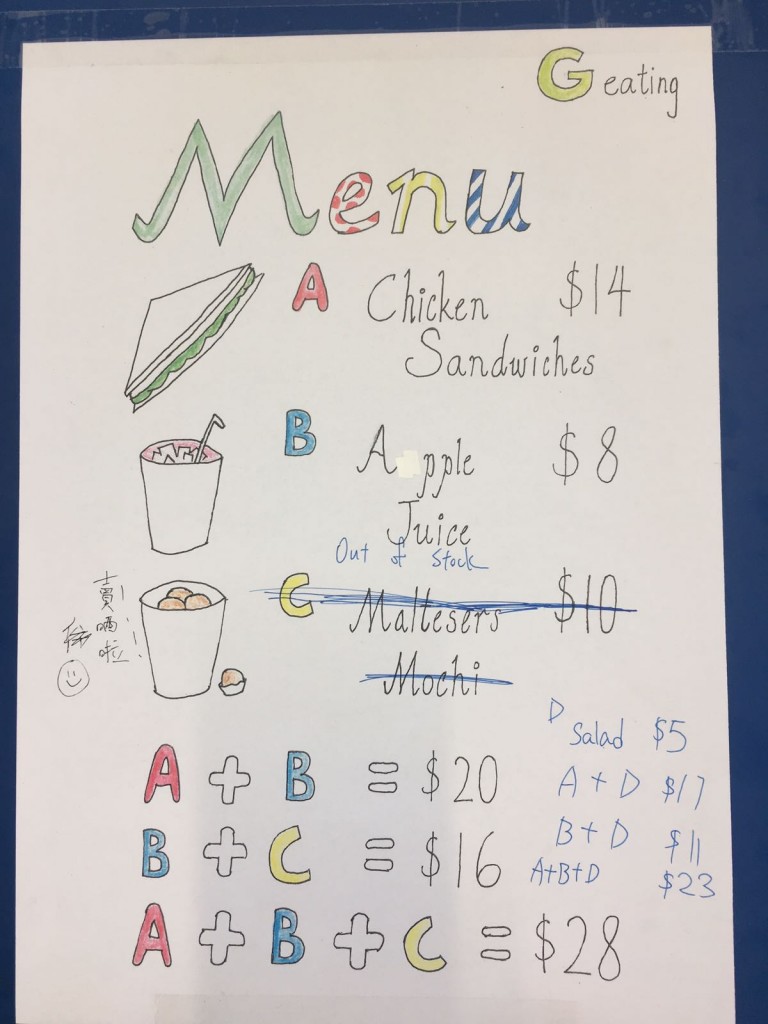 G eating
Menu
A Chicken $14
Sandwiches
B Apple $8
Juice
Out of stock
C Maltesers $10
Mochi
賣
晒
啦!
D
Salad $5
A + D $17
B + D $11
A+B+D $23
A + B = $20
B + C = $16
A + B + C = $28